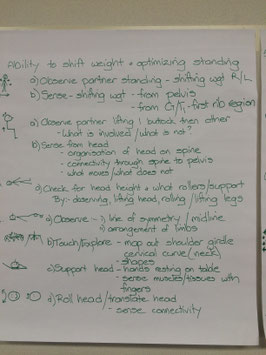 Ability to shift weight + optimizing standing
a) Observe partner standing - shifting wgt R/L
b) Sense - shifting wgt - from pelvis
- from C7/T1 - first rib region
a) Observe partner lifting 1 buttock then other
- What is involved / what is not?
b) Sense from head
- organisation of head on spine
- connectivity through spine to pelvis
- what moves / what does not
Check for head height + what rollers/support
By: - observing, lifting head, rolling / lifting legs
a) Observe - i) line of symmetry / midline
ii) arrangement of limbs
b) Touch/Explore - map out shoulder girdle
cervical curve (neck)
- shapes
c) Support head - hands resting on table
- sense muscles/tissues with fingers
d) Roll head / translate head
- sense connectivity